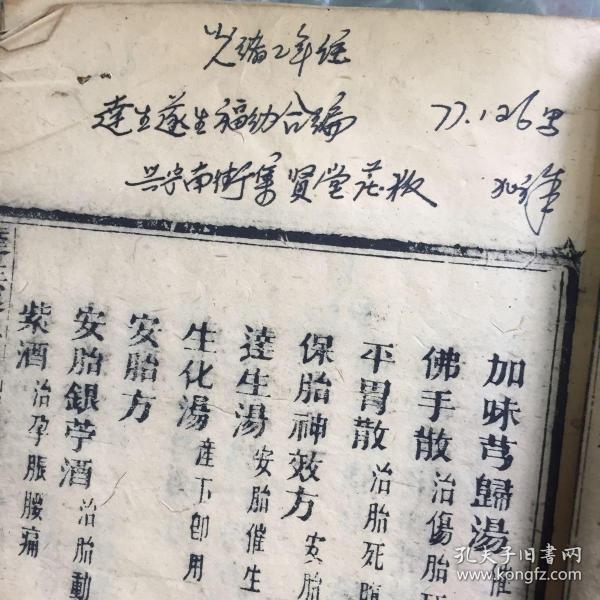 光绪2年经
達生遂生福幼合编
77.126号
兴宁南街集贤堂花板
加味芎歸湯 催
佛手散 治傷胎
平胃散 治胎死
保胎神效方 安胎
達生湯 安胎催生
生化湯 產下卽用
安胎方
安胎銀苧酒 治胎動
紫酒 治孕脹腰痛
孔夫子旧书网
www.kongfz.com